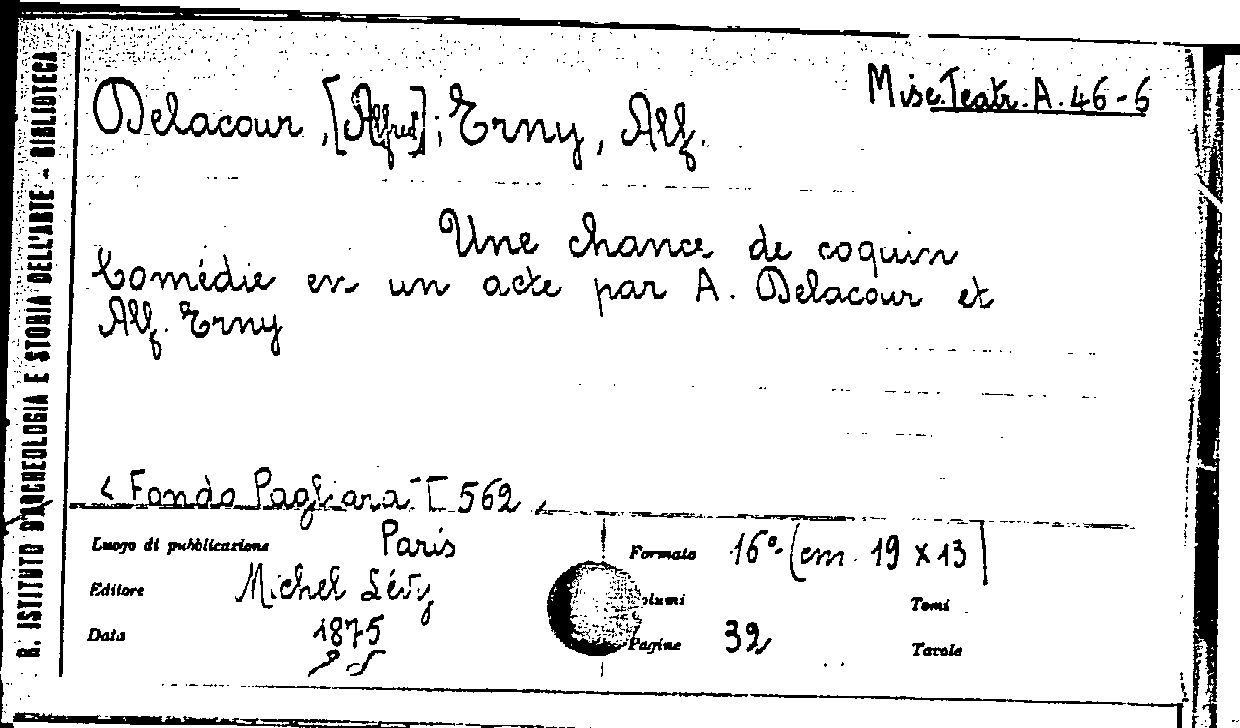 R. ISTITUTO D'ARCHEOLOGIA E STORIA DELL'ARTE - BIBLIOTECA
Misc. Teatr. A. 46 - 6
Delacour, [Alfred]; Erny, Alf.
Une chance de coquin
Comédie en un acte par A. Delacour et
Alf. Erny
< Fondo Pagliara - I 562
Luogo di pubblicazione Paris
Editore Michel Lévy
Data 1875
Formato 16° (cm. 19 x 13)
Volumi
Tomi
Pagine 32
Tavole